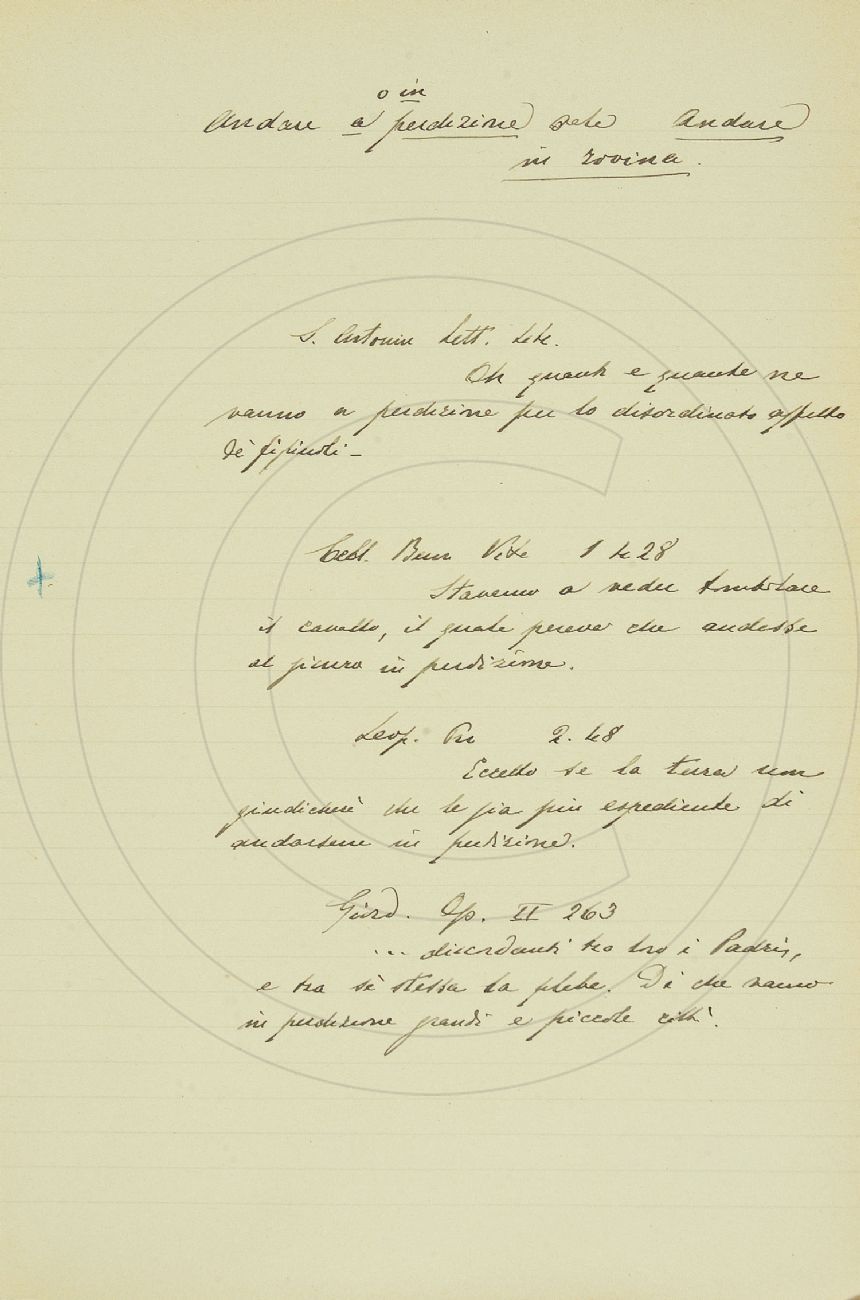 o in
Andare a perdizione vale Andare
in rovina.
S. Antonin Lett.
Oh quanti e quante ne
vanno a perdizione per lo disordinato affetto
de' figiuoli -
Cell. Benv Vita 1 428
Stavamo a veder tombolare
il cavallo, il quale pareva che andasse
al sicuro in perdizione.
Leop. Pr 2. 48
Eccetto se la terra non
giudicherà che le sia più espediente di
andarsene in perdizione.
Giord. Op. II 263
... discordanti tra loro i Padri,
e tra sè stessa la plebe. Di che vanno
in perdizione grandi e piccole città.